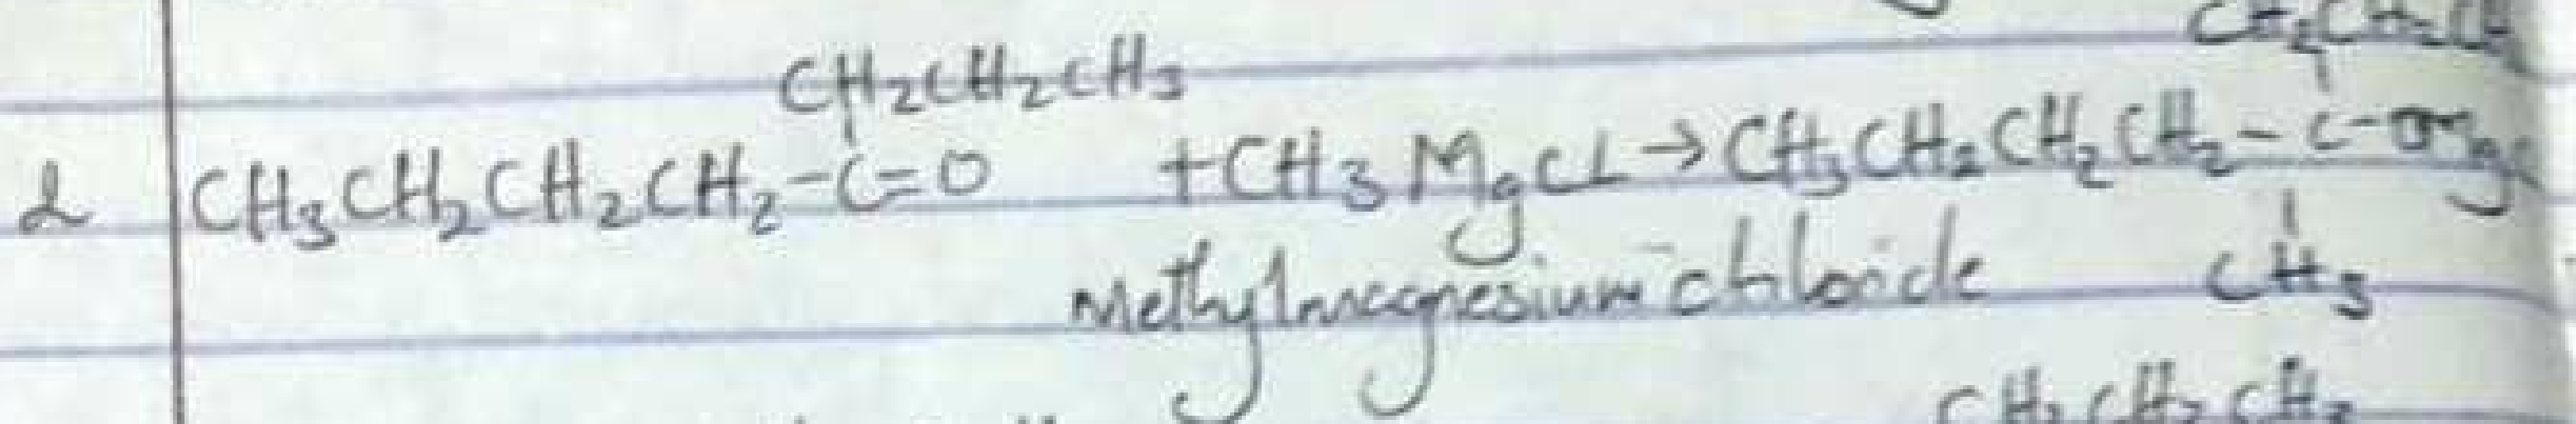 CH2CH2CH3
2 CH3CH2CH2CH2-C=O +CH3MgCl→CH3CH2CH2CH2-C-OMgC
Methylmagnesium chloride CH3
CH2CH2CH3